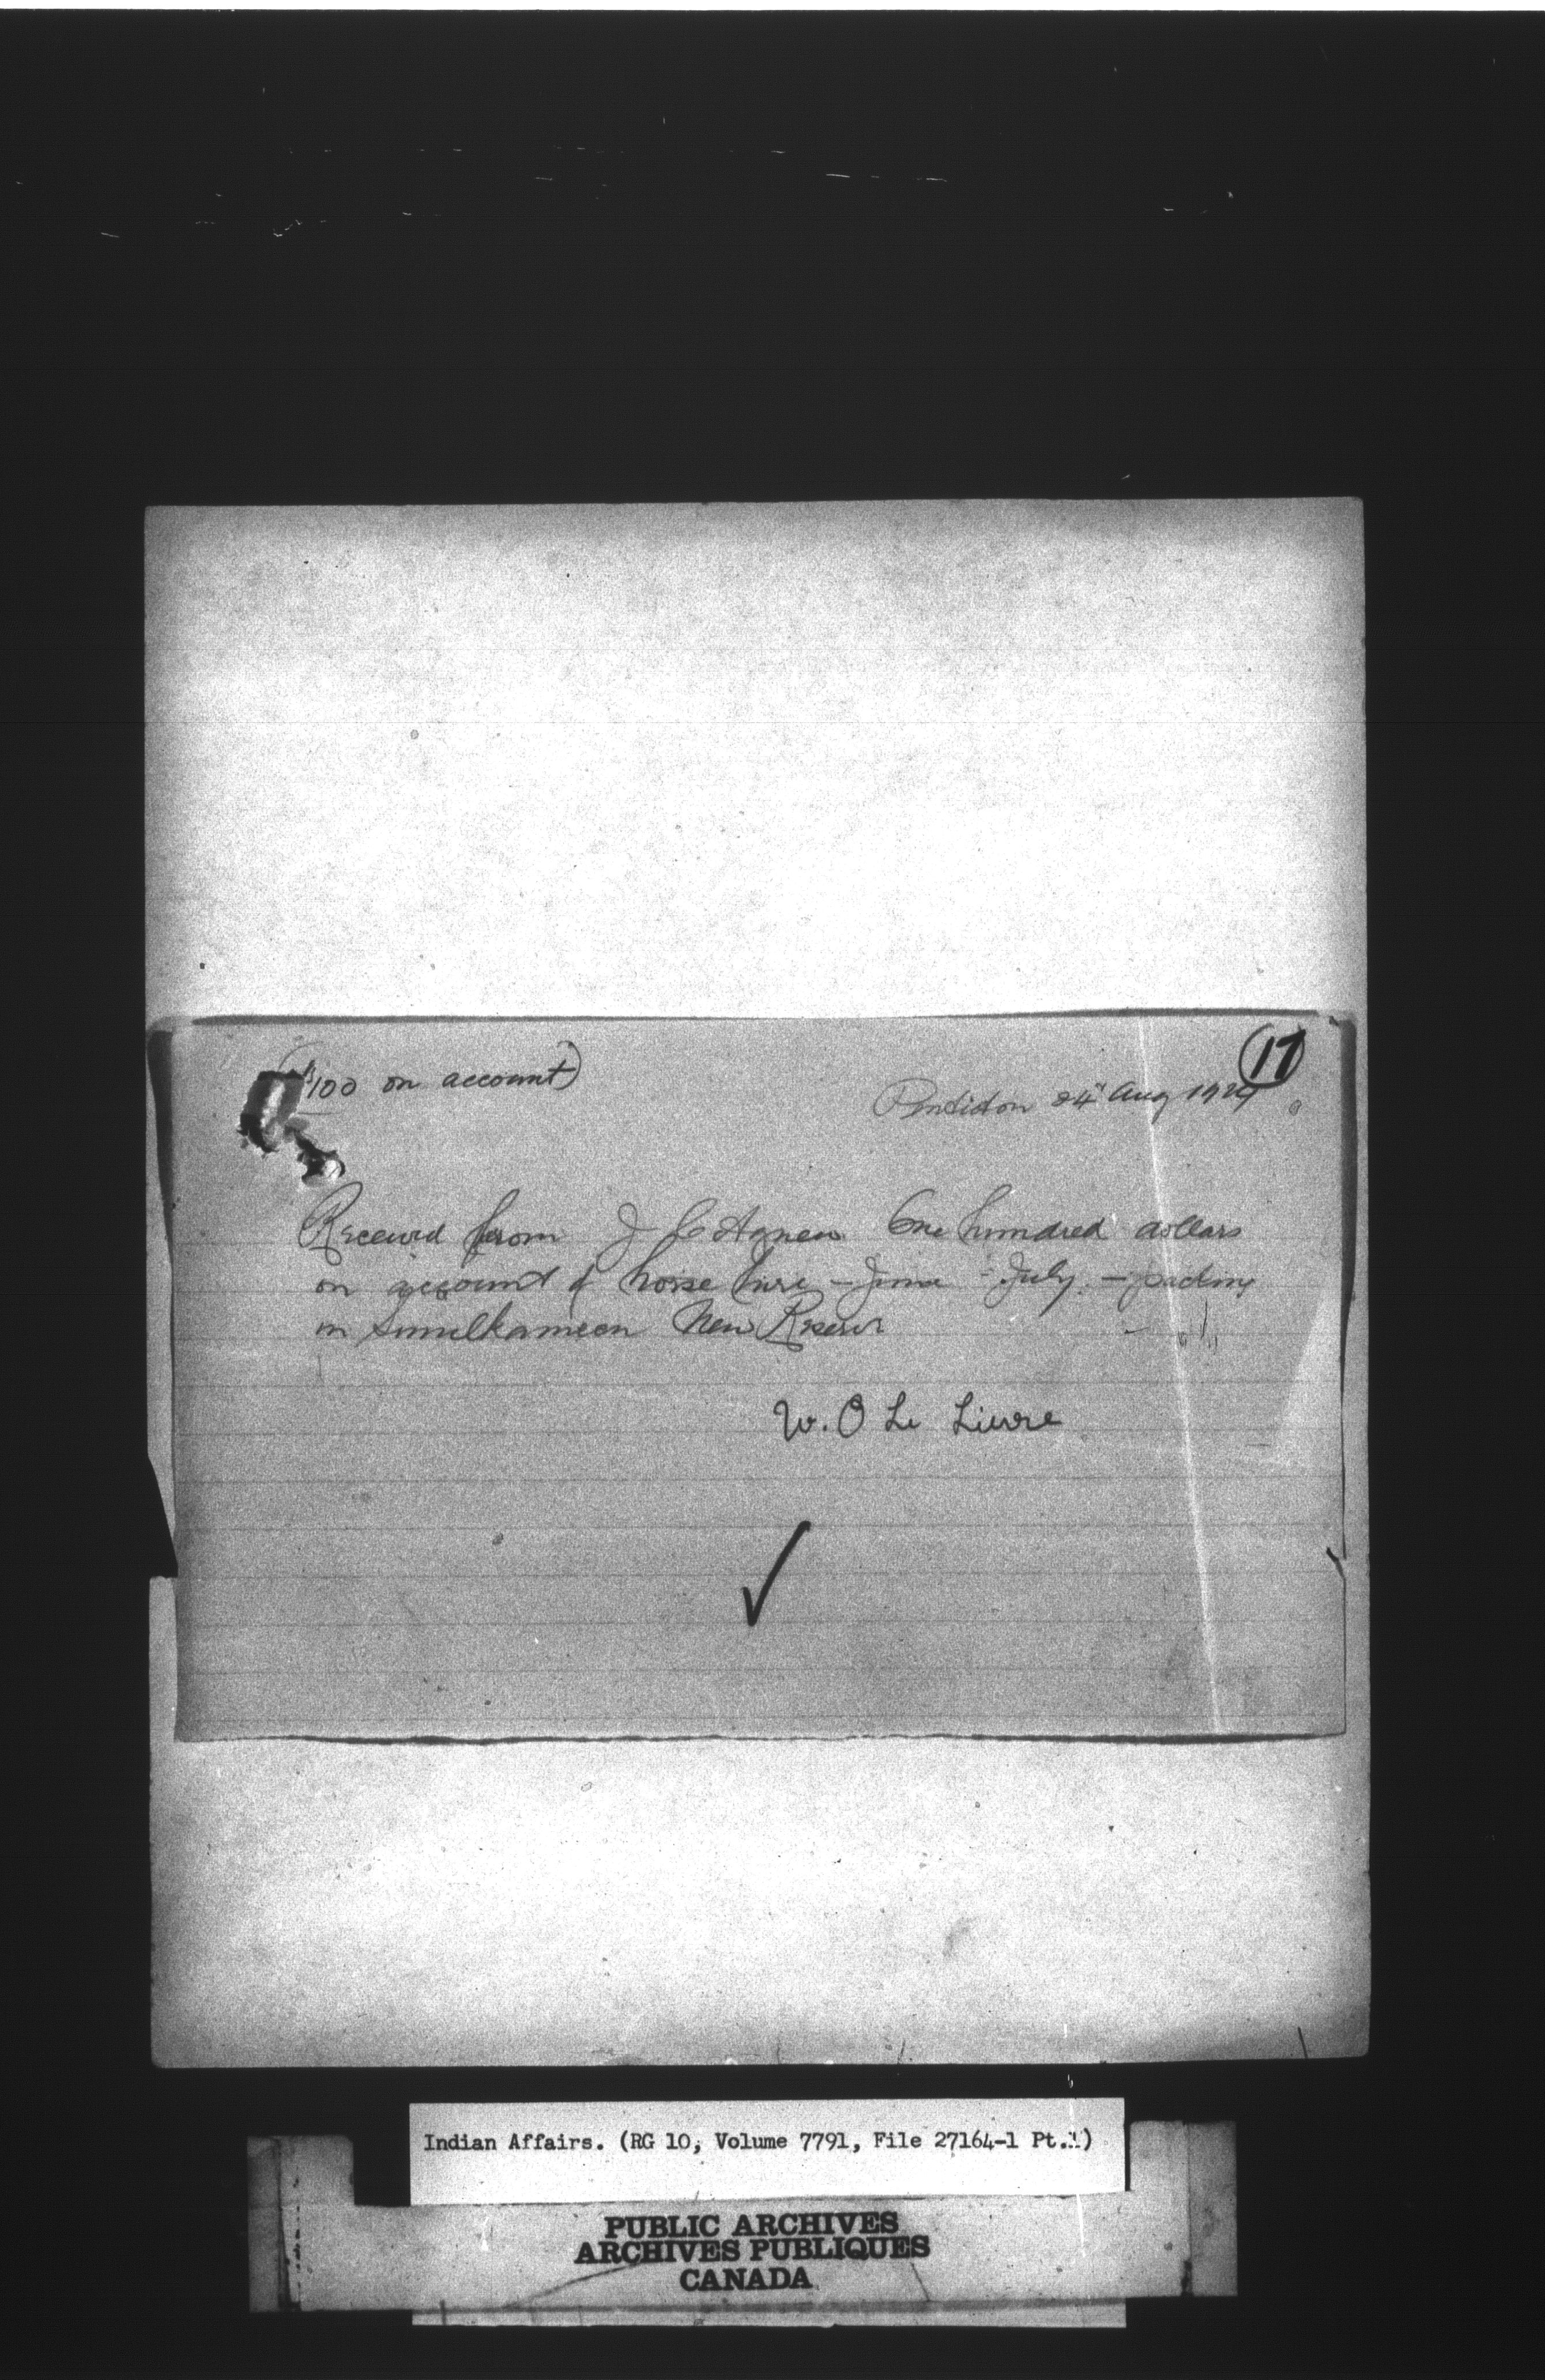 ($100 on account)
17
Penticton 24" Aug 1929
Received from J C Agnew One hundred dollars
on account of horse hire - June - July. - packing
in Similkameen New Reserve
W. O Le Lievre
Indian Affairs. (RG 10, Volume 7791, File 27164-1 Pt.1)
PUBLIC ARCHIVES
ARCHIVES PUBLIQUES
CANADA